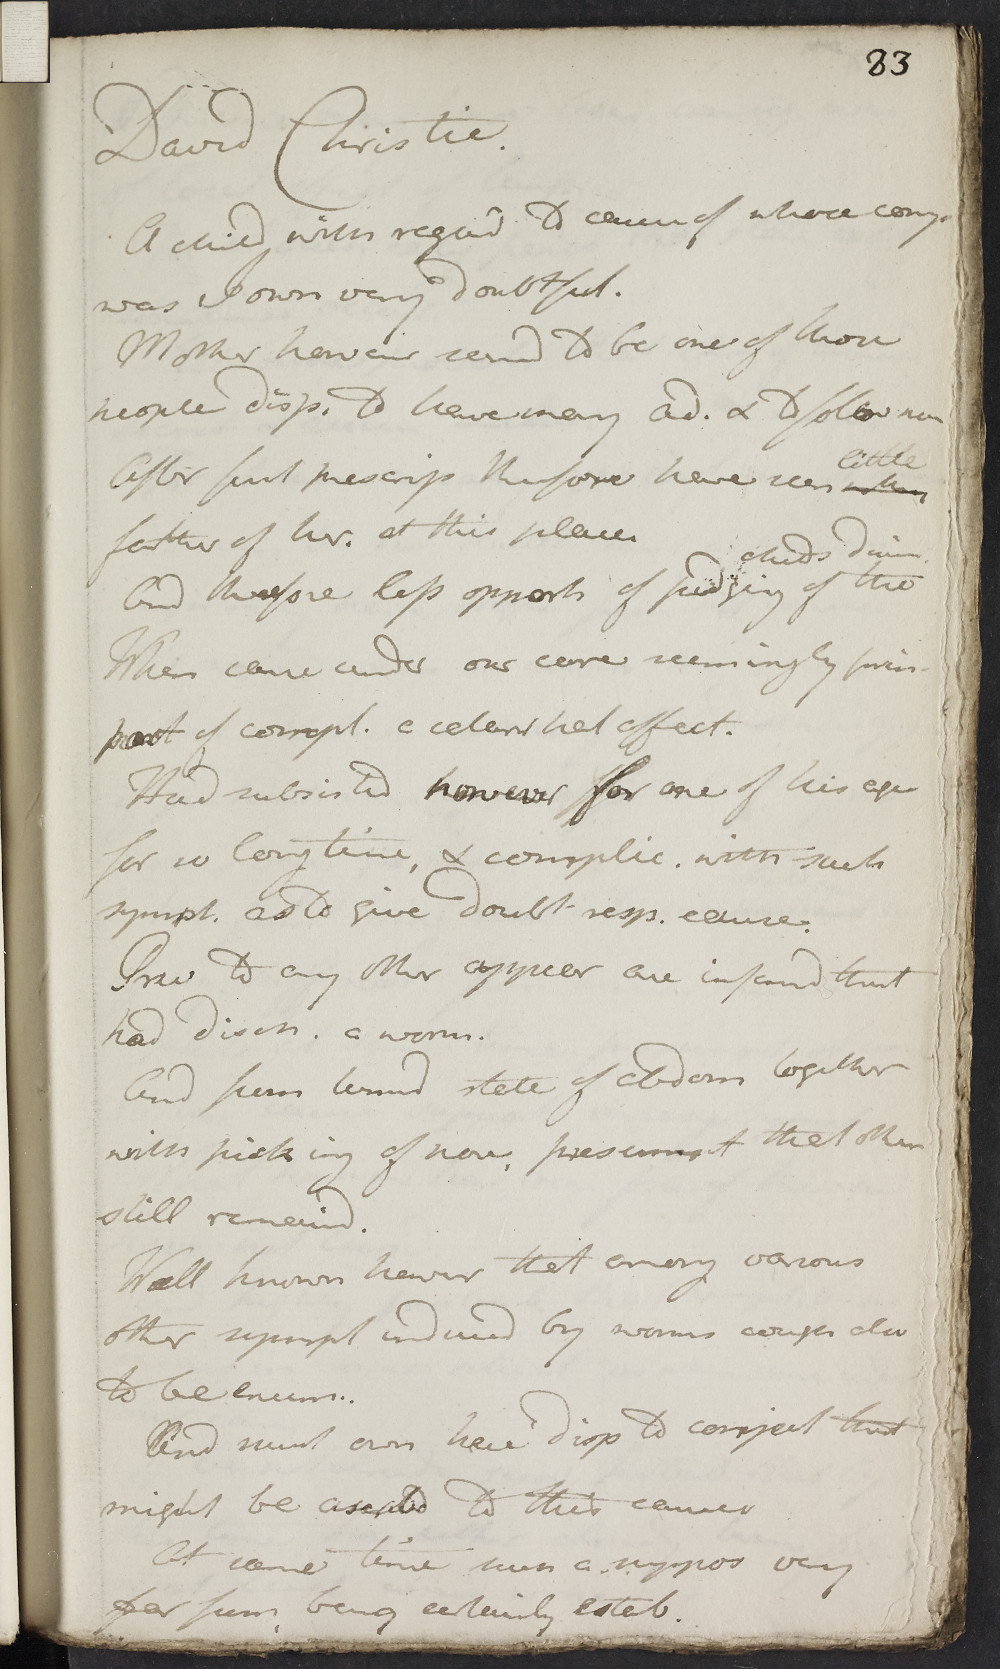 83
David Christie.
A child with regard to cause of whose comp.
was I own very doubtful.
Mother however seemd to be one of those
people disp. to have many ad. & to follow non
After first prescrip therefore have seen little
farther of her. at this place
childs
And therefore less opports of judging of the
When came under our care seemingly prin.
part of compl. a catarrhal affect.
Had subsisted however for one of his age
for so long time, & complic. with such
sympt. as to give doubt resp. cause.
Prev to any other appear are informd that
had disch. a worm.
And from tumid state of abdom together
with picking of nose, presumpt that others
still remaind.
Well known howevr that among various
other sympt induced by worms cough also
to be enum..
And must own here disp to conject that
might be ascribd to this cause
At same time such a suppos very
far from being certainly estab.